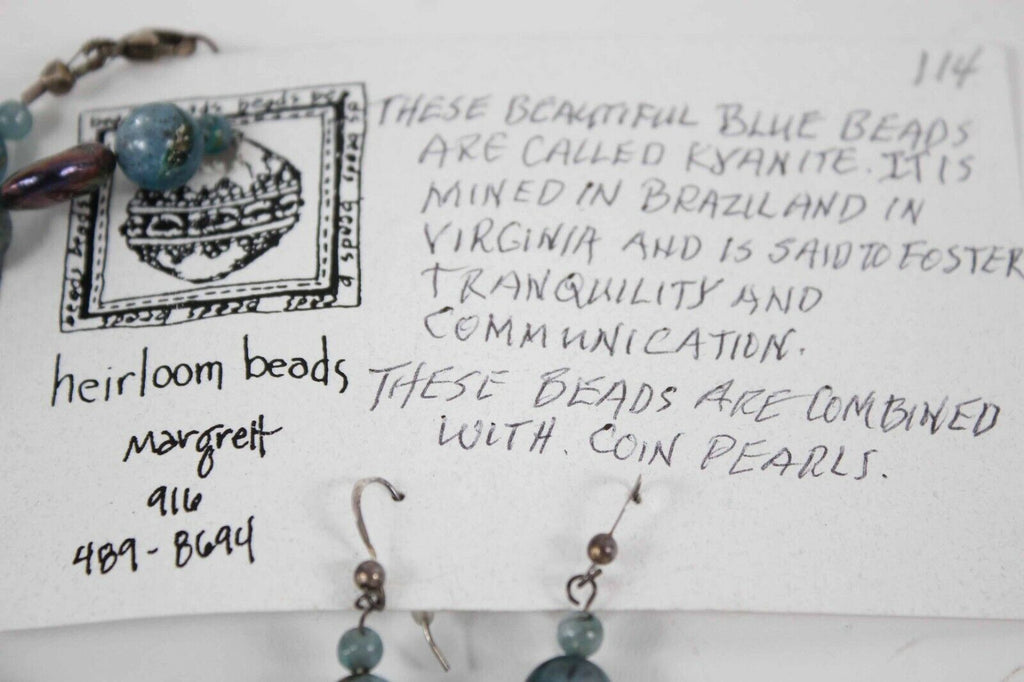 114
THESE BEAUTIFUL BLUE BEADS
ARE CALLED KYANITE. IT IS
MINED IN BRAZIL AND IN
VIRGINIA AND IS SAID TO FOSTER
TRANQUILITY AND
COMMUNICATION.
THESE BEADS ARE COMBINED
WITH. COIN PEARLS.
beads beads
beads beads
beads beads beads
heirloom beads
Margrett
916
489-8694